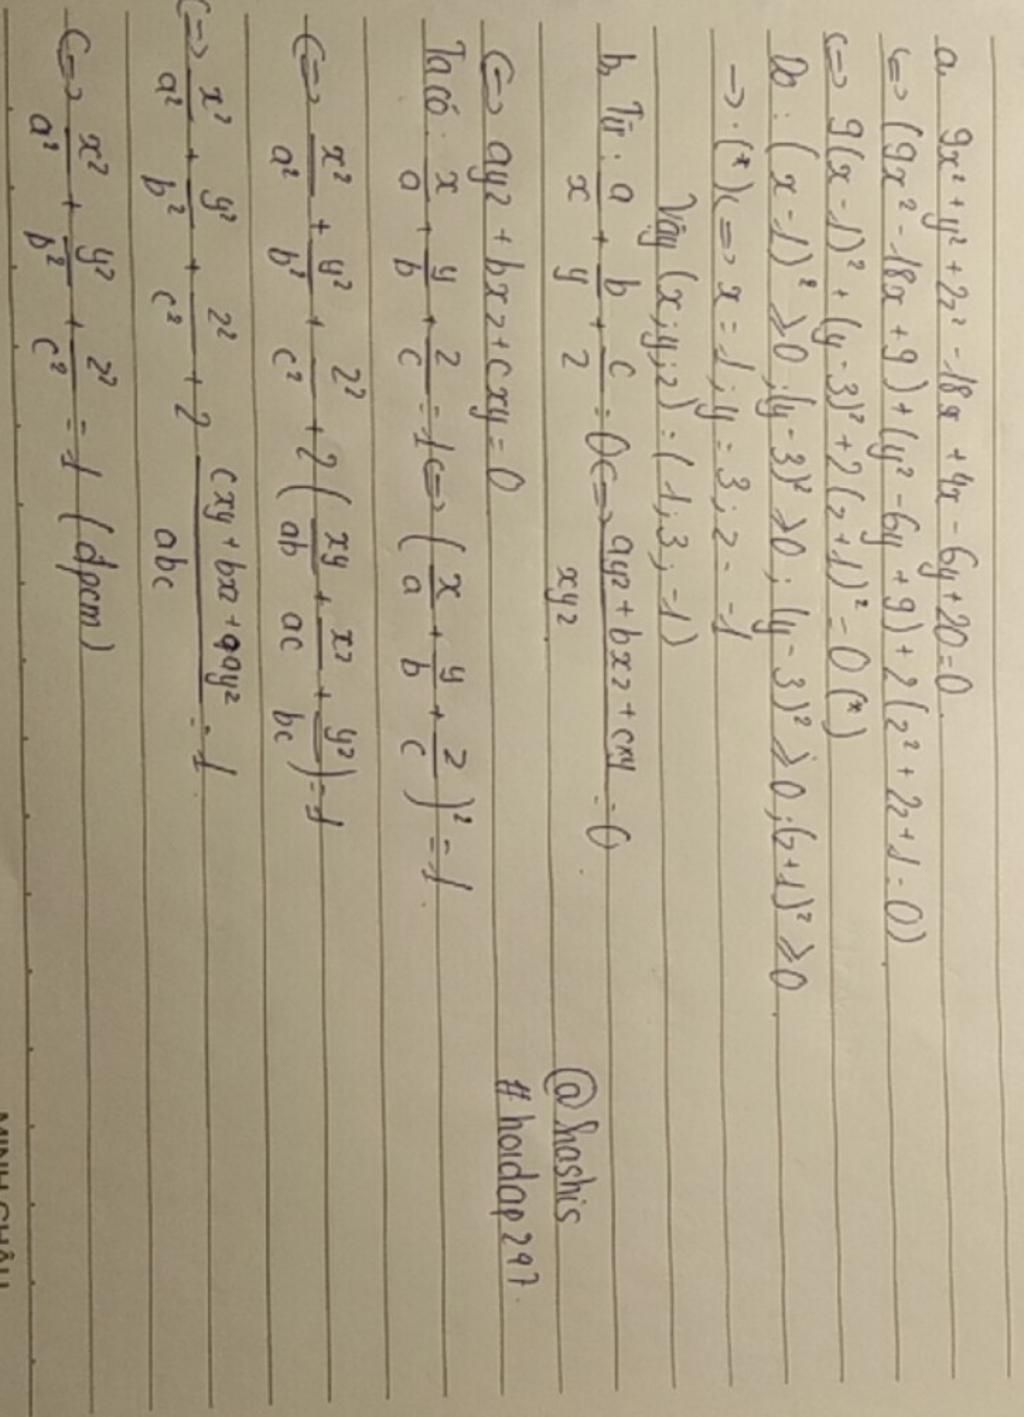 a, 9x² + y² + 2z² - 18x + 4x - 6y + 20 = 0
<=> (9x² - 18x + 9) + (y² - 6y + 9) + 2(z² + 2z + 1 = 0)
<=> 9(x - 1)² + (y - 3)² + 2(z + 1)² = 0 (*)
Do : (x - 1)² ≥ 0 ; (y - 3)² ≥ 0 ; (y - 3)² ≥ 0 ; (z + 1)² ≥ 0
→ . (*) <=> x = 1 ; y = 3 ; z = -1
Vậy (x ; y ; z) = (1 ; 3 ; -1)
b, Từ : a/x + b/y + c/z = 0 <=> (ayz + bxz + cxy)/xyz = 0
<=> ayz + bxz + cxy = 0
Ta có : x/a + y/b + z/c = 1 <=> (x/a + y/b + z/c)² = 1
<=> x²/a² + y²/b² + z²/c² + 2(xy/ab + xz/ac + yz/bc) = 1
<=> x²/a² + y²/b² + z²/c² + 2 (cxy + bxz + ayz)/abc = 1
<=> x²/a² + y²/b² + z²/c² = 1 (đpcm)
@hashis
#hoidap247
MINH CHÂU